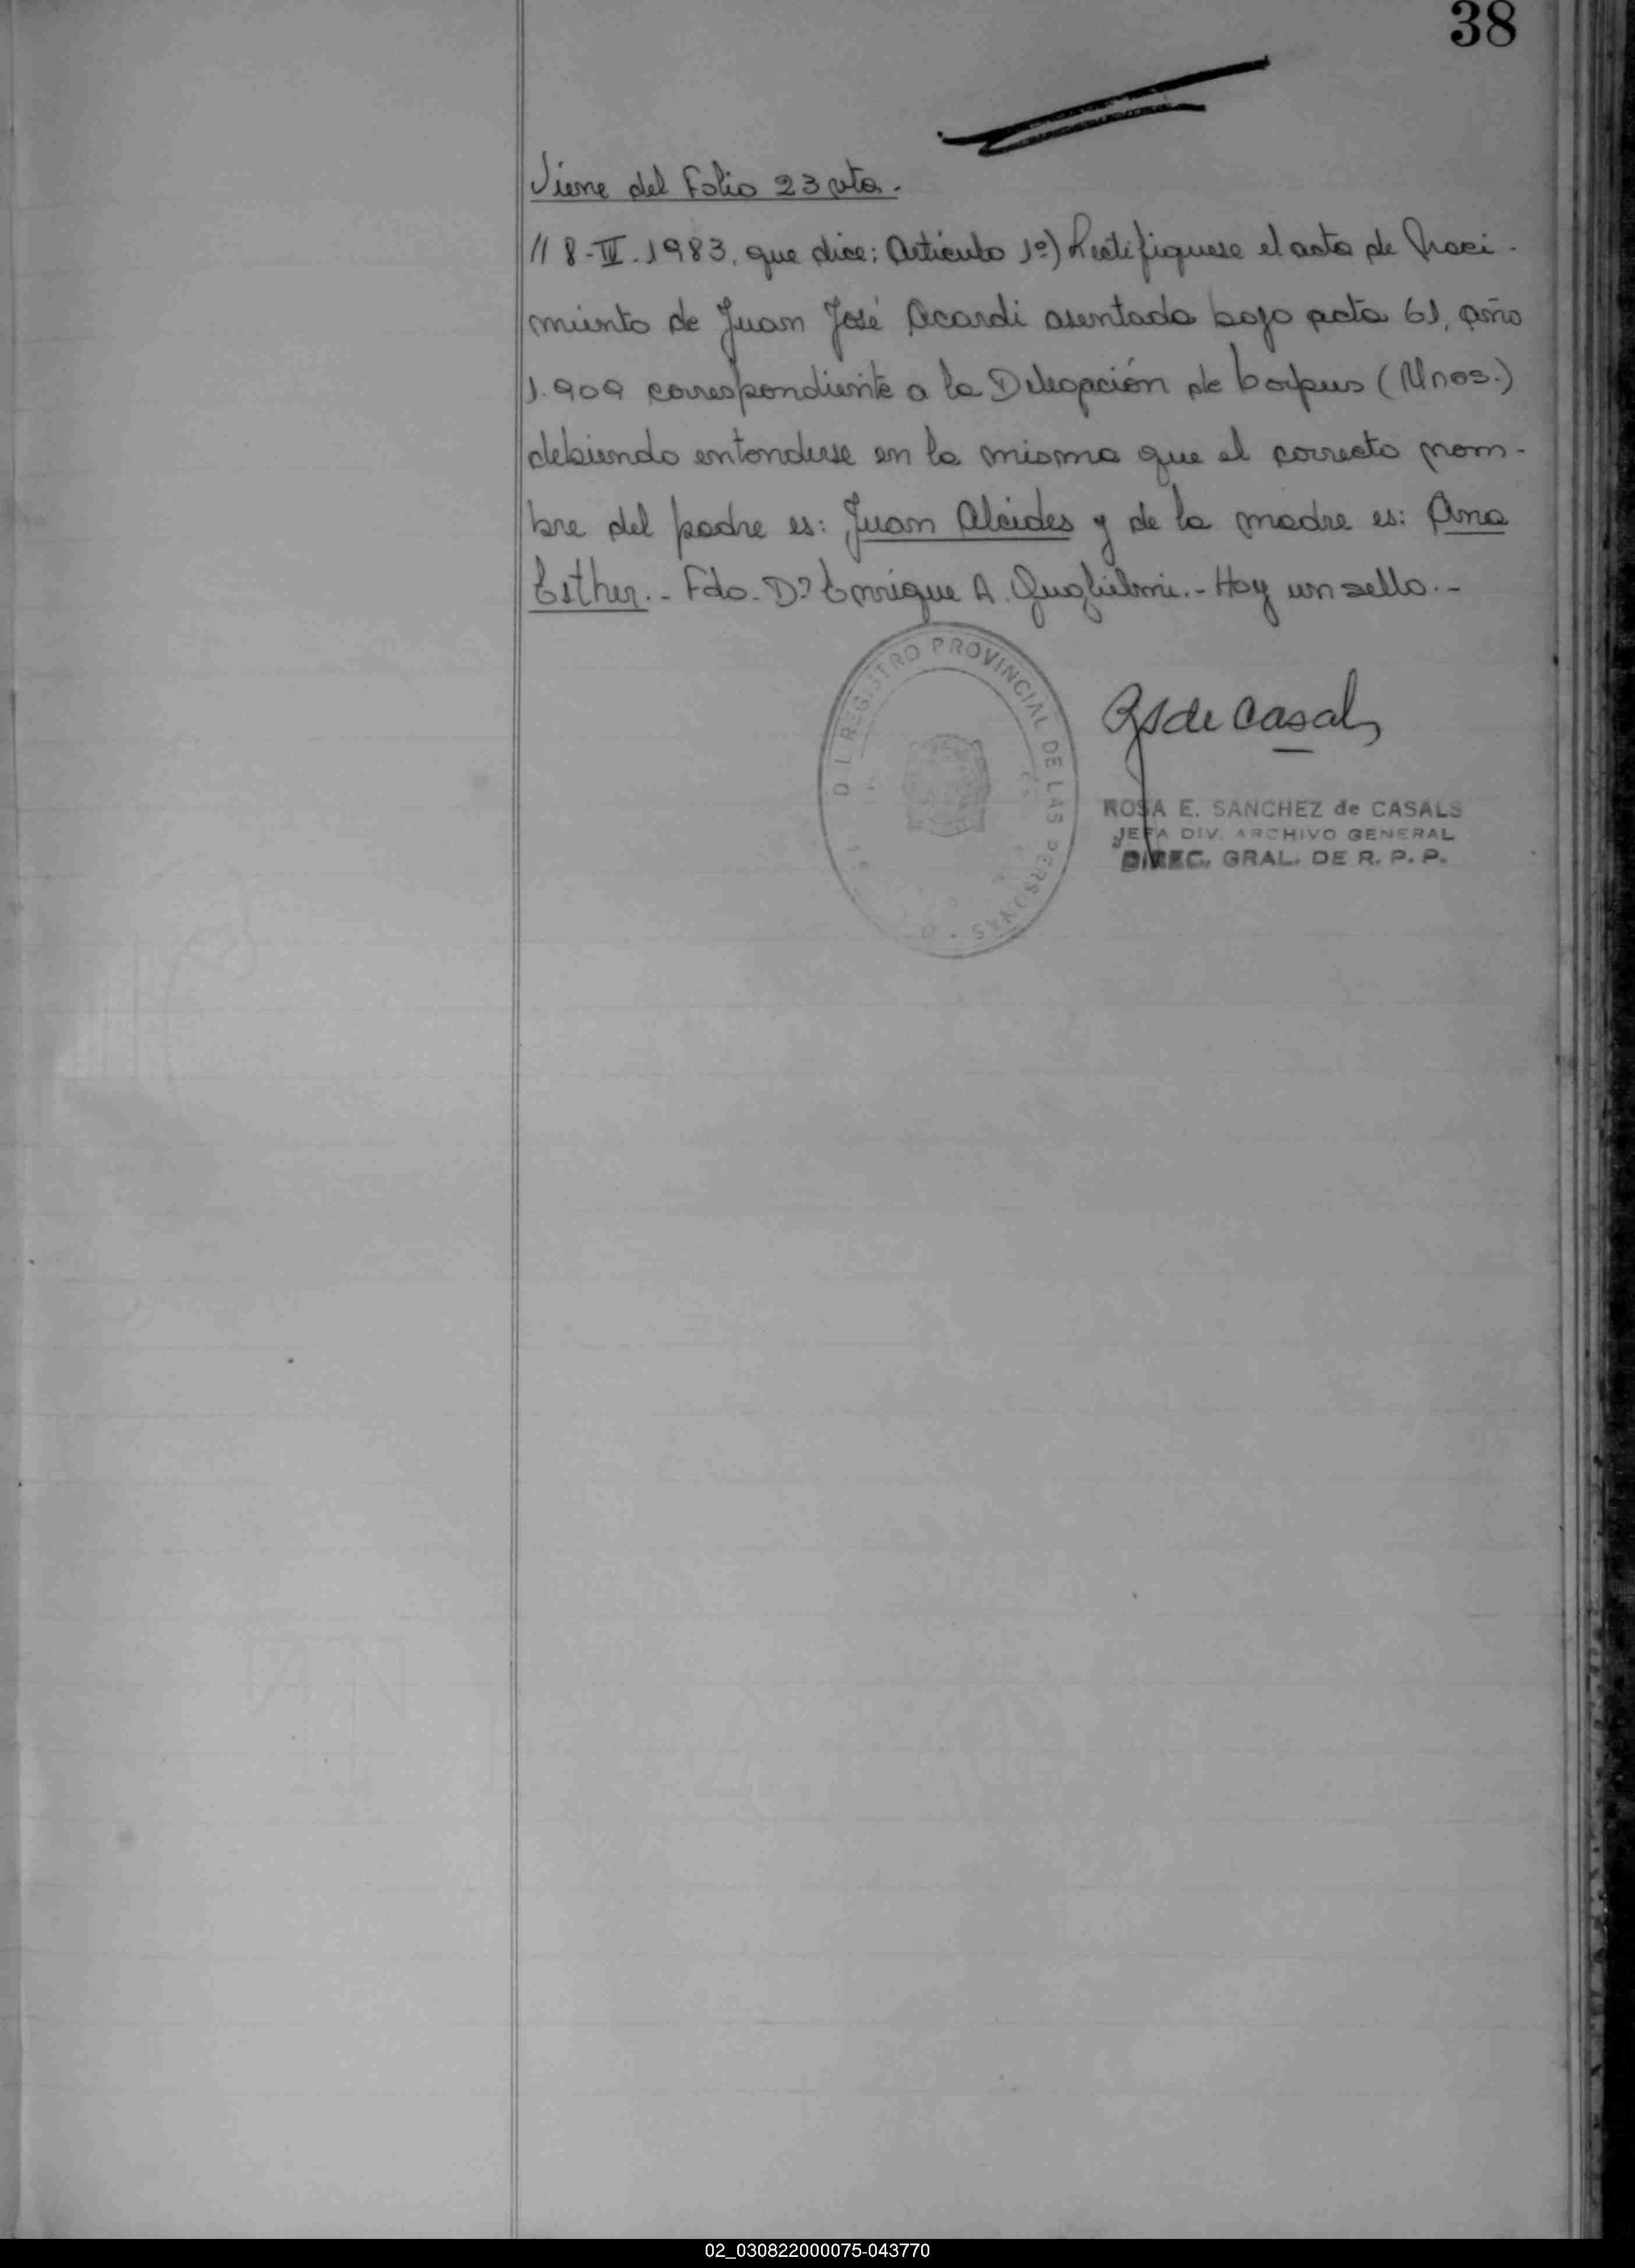 38
Viene del Folio 23 vta.
// 8-IV-1983, que dice: Artículo 1º) Rectifiquese el acta de Naci-
miento de Juan José Acardi asentada bajo acta 61, año
1.909 correspondiente a la Delegación de Corpus (Mnes.)
debiendo entenderse en la misma que el correcto nom-
bre del padre es: Juan Alcides y de la madre es: Ana
Esther.- Fdo. Dr Enrique A. Guglielmi.- Hay un sello.-
REGISTRO PROVINCIAL DE LAS PERSONAS
de Casals
ROSA E. SANCHEZ de CASALS
JEFA DIV. ARCHIVO GENERAL
DIREC. GRAL. DE R. P. P.
02_030822000075-043770